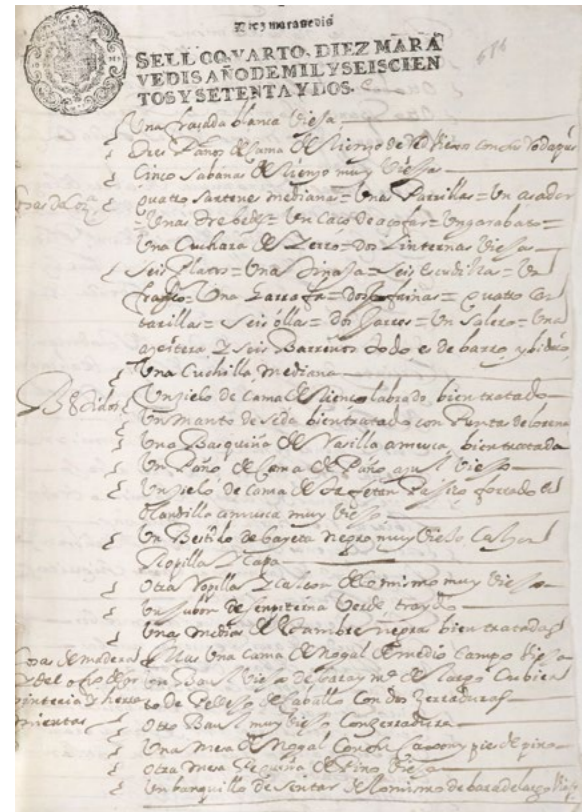 Diez maravedis
SELLO QVARTO. DIEZ MARA
VEDIS AÑO DE MIL Y SEISCIEN
TOS Y SETENTA Y DOS.
Una fraçada blanca Viexa
Cinco Sabanas de lienço muy Viexas
quatro sartenes medianas = Unas Parrillas = Un asador
= Unas Trebedes = Un Caço de açofar = Un garabato =
Una Cuchara de Yerro = dos Linternas Viexas
Seis Platos = Una Tinaxa = Seis Escudillas = Un
frasco = Una Garrafa = dos = quatro Can
tarillas = seis ollas = dos Jarros = Un Salero = Una
aceitera Y seis Barreños todo es de barro y bidrio
Una Cuchilla mediana
Bestidos
Un sielo de Cama de lienço labrado bien tratado
Un manto de seda bien tratado con Puntas de lorena
Una Basquiña de bien tratada
Un Paño de Cama de Paño açul Viexo
Un sielo de Cama de Tafetan Paxiço forrado en
olandilla muy Viexo
Un Bestido de bayeta negro muy Viexo Calson
Ropilla Y Capa
Otra Ropilla Y calson de lo mismo muy Viexo
Un Jubon de Verde traydo
Unas medias de estambre negras bien tratadas
Cosas de madera
Y del oficio de
Mas Una Cama de Nogal de medio Campo Viexa
Un Baul Viexo de bara y mª de largo Cubier
to de Pellexo de Caballo con dos Zerraduras
Otro Baul muy Viexo Con Zerradura
Una Mesa de Nogal Con su Caxon y pies de pino
Otra Mesa Pequeña de Pino Viexa
Un banquillo de sentar de lo mismo de bara de largo Viexo